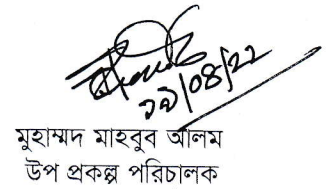 ১৯/০৪/২২
মুহাম্মদ মাহবুব আলম
উপ প্রকল্প পরিচালক